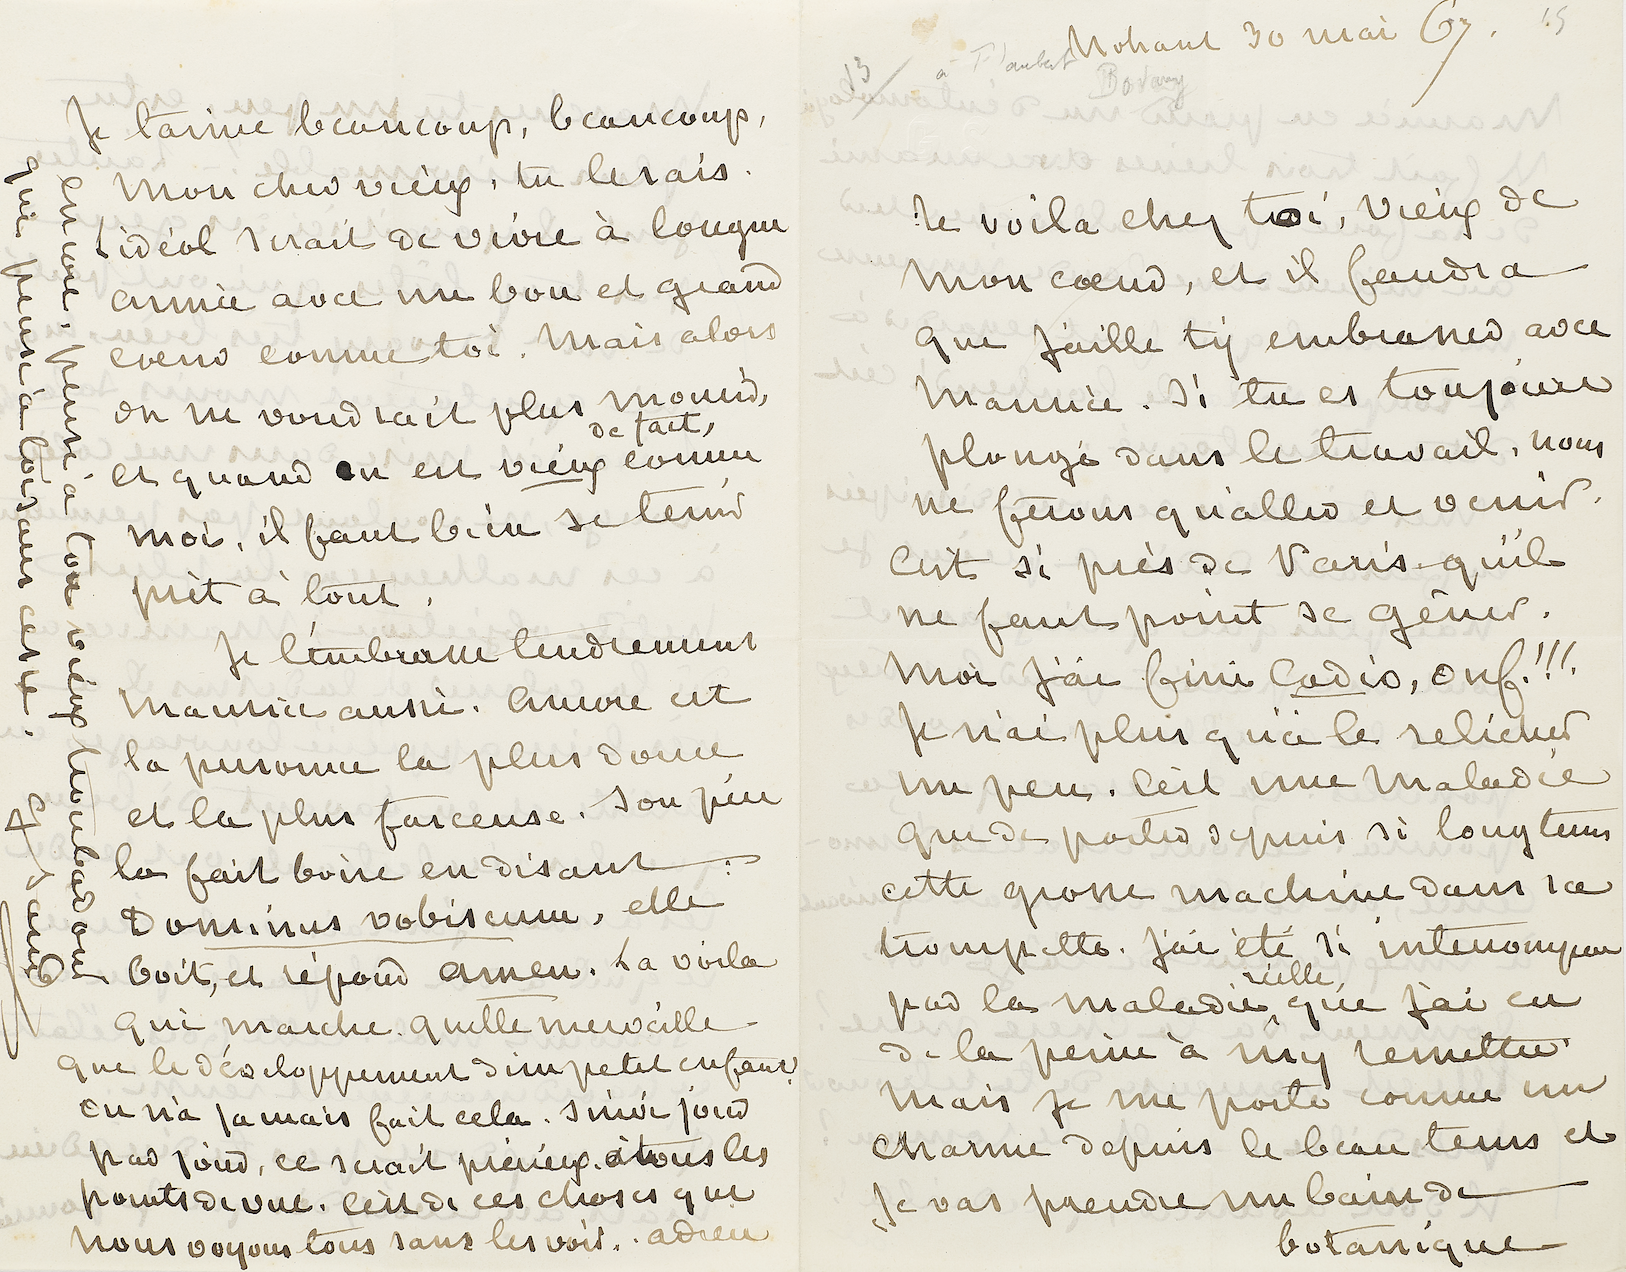 Nohant 30 mai 67.
15
13
à Flaubert
Bovary
Te voila chez toi, vieux de
mon cœur, et il faudra
que j'aille t'y embrasser avec
Maurice. Si tu es toujours
plongé dans le travail, nous
ne ferons qu'aller et venir.
C'est si près de Paris qu'il
ne faut point se gêner.
Moi j'ai fini Cadio, ouf!!!
Je n'ai plus qu'à le relicher
un peu. C'est une maladie
que de porter depuis si longtems
cette grosse machine dans sa
trompette. J'ai été si interrompue
par la maladie réelle, que j'ai eu
de la peine à m'y remettre.
Mais je me porte comme un
charme depuis le beau tems et
je vas prendre un bain de
botanique
Je t'aime beaucoup, beaucoup,
mon cher vieux, tu le sais.
L'idéal serait de vivre à longue
année avec un bon et grand
cœur comme toi. Mais alors
on ne voudrait plus mourir,
et quand on est vieux de fait, comme
moi, il faut bien se tenir
prêt à tout.
Je t'embrasse tendrement
Maurice aussi. Aurore est
la personne la plus douce
et la plus farceuse. Son père
la fait boire en disant :
Dominus vobiscum, elle
boit, et répond amen. La voila
qui marche. Quelle merveille
que le développement d'un petit enfant!
On n'a jamais fait cela. Suivi jour
par jour, ce serait précieux à tous les
points de vue. C'est de ces choses que
nous voyons tous sans les voir. adieu
encore, pense à ton vieux troubadour
qui pense à toi sans cesse.
G Sand